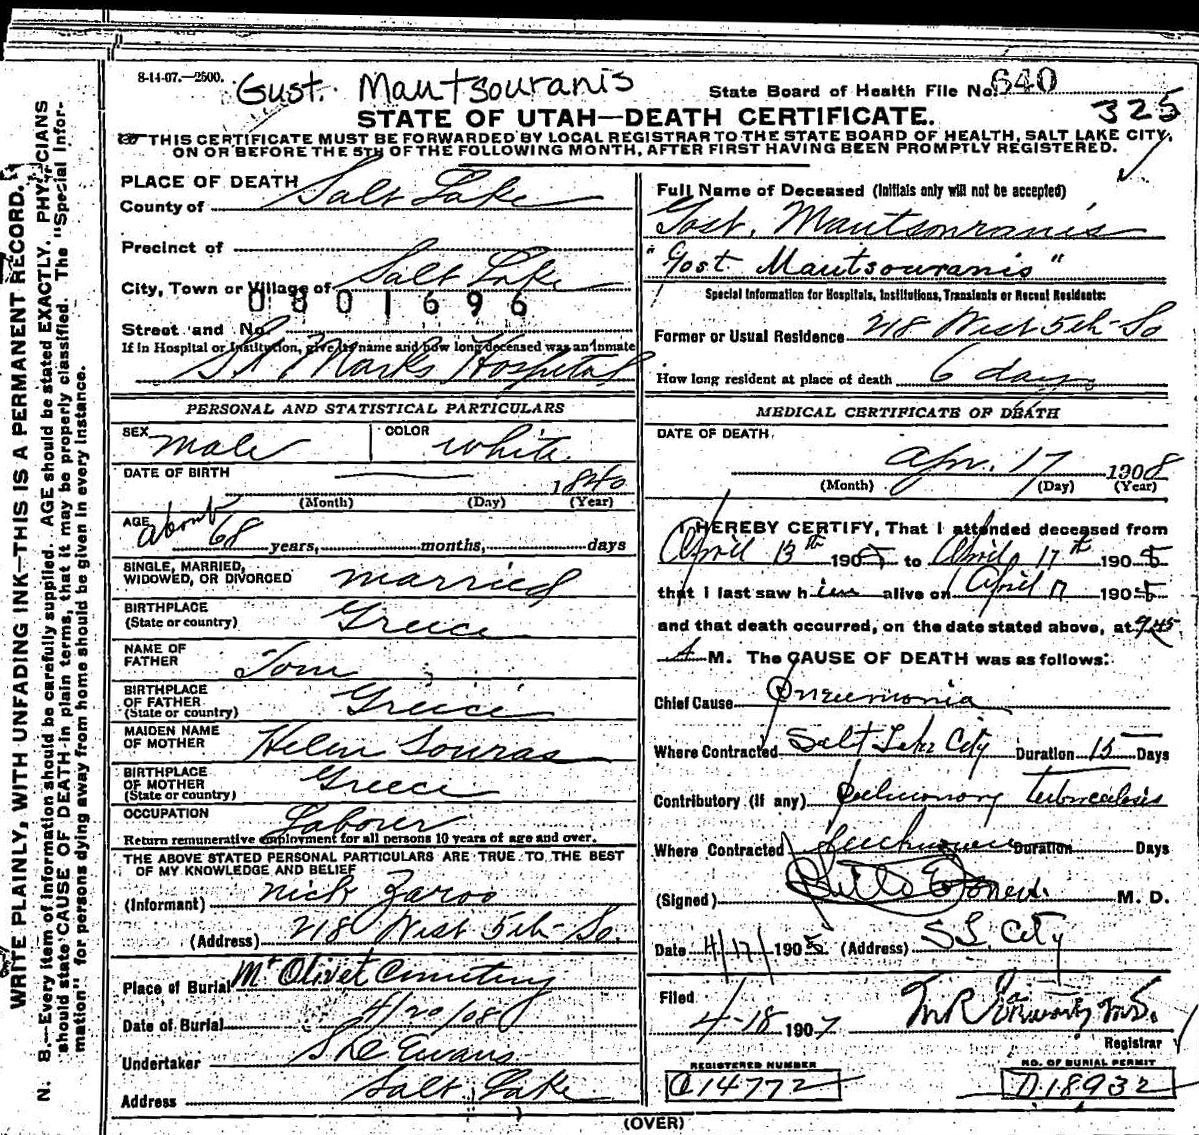 8-14-07.—2500.
Gust. Mautsouranis
State Board of Health File No. 640
325
STATE OF UTAH—DEATH CERTIFICATE.
THIS CERTIFICATE MUST BE FORWARDED BY LOCAL REGISTRAR TO THE STATE BOARD OF HEALTH, SALT LAKE CITY,
ON OR BEFORE THE 5TH OF THE FOLLOWING MONTH, AFTER FIRST HAVING BEEN PROMPTLY REGISTERED.
WRITE PLAINLY, WITH UNFADING INK—THIS IS A PERMANENT RECORD.
N. B.—Every item of information should be carefully supplied. AGE should be stated EXACTLY. PHYSICIANS
should state CAUSE OF DEATH in plain terms, that it may be properly classified. The "Special Infor-
mation" for persons dying away from home should be given in every instance.
PLACE OF DEATH
County of Salt Lake
Precinct of
City, Town or Village of Salt Lake
0801696
Street and No.
If in Hospital or Institution, give its name and how long deceased was an inmate
St Marks Hospital
PERSONAL AND STATISTICAL PARTICULARS
SEX male COLOR white
DATE OF BIRTH 1840
(Month) (Day) (Year)
AGE about 68 years, months, days
SINGLE, MARRIED,
WIDOWED, OR DIVORCED married
BIRTHPLACE
(State or country) Greice
NAME OF
FATHER Tom
BIRTHPLACE
OF FATHER
(State or country) Greice
MAIDEN NAME
OF MOTHER Helen Souras
BIRTHPLACE
OF MOTHER
(State or country) Greece
OCCUPATION Laborer
Return remunerative employment for all persons 10 years of age and over.
THE ABOVE STATED PERSONAL PARTICULARS ARE TRUE TO THE BEST
OF MY KNOWLEDGE AND BELIEF
(Informant) Nick Zaros
(Address) 218 West 5th So.
Place of Burial Mt Olivet Cemetery
Date of Burial 4/20/08
Undertaker Evans
Address Salt Lake
Full Name of Deceased (Initials only will not be accepted)
Gost. Mautsouranis
"Gost Mautsouranis"
Special Information for Hospitals, Institutions, Transients or Recent Residents:
Former or Usual Residence 218 West 5th So
How long resident at place of death 6 days
MEDICAL CERTIFICATE OF DEATH
DATE OF DEATH.
Apr. 17 1908
(Month) (Day) (Year)
I HEREBY CERTIFY, That I attended deceased from
April 13th 1908 to April 17th 1908
that I last saw him alive on April 17 1908
and that death occurred, on the date stated above, at 9:45
A M. The CAUSE OF DEATH was as follows:
Chief Cause Pneumonia
Where Contracted Salt Lake City Duration 15 Days
Contributory (if any) Pulmonary Tuberculosis
Where Contracted Duration Days
(Signed) M. D.
Date 4/17/1908 (Address) S L City
Filed
4-18 1907
Registrar
REGISTERED NUMBER
C14772
NO. OF BURIAL PERMIT
D18932
(OVER)